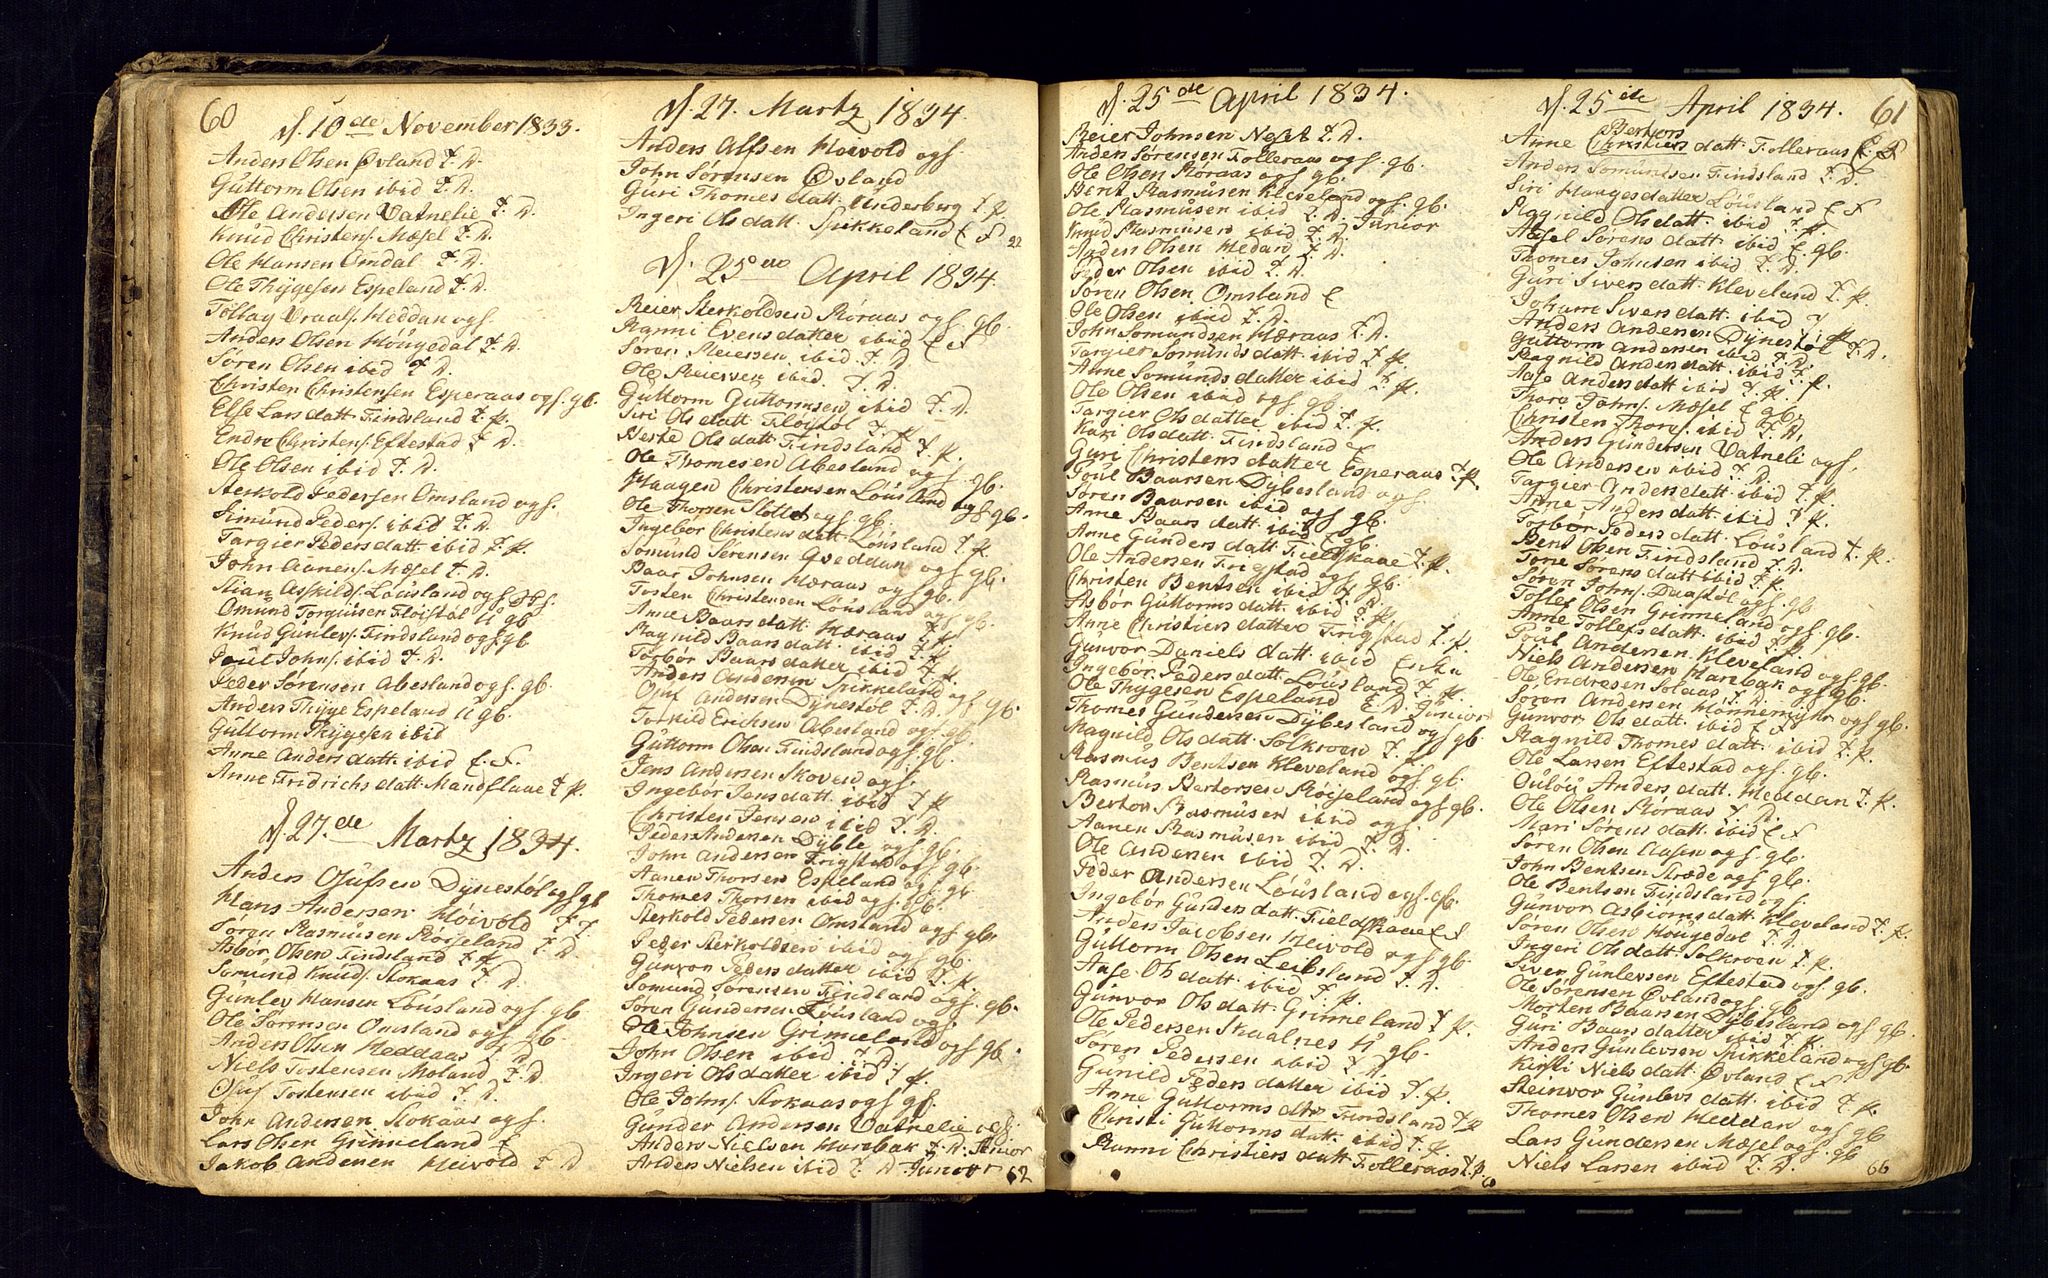 60
d. 10de November 1833.
Anders Olsen Øvland T. D.
Guttorm Olsen ibid T. D.
Ole Andersen Vatnelie T. D.
Knud Christens. Mæsel T. D.
Ole Hansen Omdal T. D.
Ole Thygesen Espeland T. D.
Tollag Vraals. Heddan og f.
Anders Olsen Hougedal T. D.
Søren Olsen ibid T. D.
Christen Christensen Esperaas og f. gb.
Else Larsdatt. Findsland T. P.
Endre Christens. Eftestad T. D.
Ole Olsen ibid T. D.
Sterkold Pedersen Omsland og f.
Simund Peders. ibid T. D.
Targier Pedersdatt. ibid T. P.
John Aanens. Mæsel T. D.
Stian Askilds. Lousland og f.
Omund Torgiusen Floistøl U gb
Knud Gunlevs. Findsland og f gb
Poul Johns. ibid T. D.
Peder Sørensen Abesland og f. gb.
Anders Thyge Espeland U gb.
Guttorm Thygesen ibid
Anne Andersdatt. ibid E. F.
Anne Fridrichsdatt. Mandflaae T P.
d. 27.de Martz 1834.
Anders Olufsen Dynestøl og f gb
Hans Andersen Høivold T. D.
Søren Rasmusen Røiseland T. D.
Asbør Olsen Findsland T. P.
Somund Knuds. Stokaas T. D.
Gunlev Hansen Lousland og f gb
Ole Sørensen Omsland og f gb.
Anders Olsen Heddan T. D.
Niels Tostensen Moland T. D
Oluf Tostensen ibid T. D.
John Andersen Stokaas og f.
Lars Olsen Grimeland E
Jakob Andersen Heivold T D
d. 27. Martz 1834.
Anders Alfsen Hoivold og f.
John Sørensen Øvland
Guri Thomesdatt. Underberg T P.
Ingeri Olsdatt. Spikkeland E F 22
d. 25de April 1834.
Reier Sterkoldsen Røraas og f. gb.
Ranni Evensdatter ibid E F
Søren Reiersen ibid T. D
Ole Reiersen ibid. T. D.
Guttorm Guttormsen ibid T. D.
Siri Olsdatt. Floistøl T. P.
Berte Olsdatt. Findsland T P.
Ole Thomesen Abesland og f. gb.
Haagen Christensen Lousland og f gb.
Ole Thorsen Slottet og f. gb.
Ingebor Christensdatt. Lousland T. P.
Somund Sørensen Qveddan og f. gb.
Baar Johnsen Hæraas og f gb.
Tosten Christensen Lousland og f gb.
Anne Baarsdatt. Hæraas T P.
Ragnild Baarsdatt. ibid T. P.
Torbør Baarsdatter ibid T. P.
Anders Andersen Spikkeland og f gb.
Oluf Andersen Dynestøl T. D.
Torkild Erichsen Abesland og f gb.
Guttorm Olsen Findsland og f. gb.
Jens Andersen Skoven og f.
Ingebor Jensdatt. ibid T P.
Christen Jensen ibid T. D.
Peder Andersen Dyble og f. gb.
John Andersen Frigstad og f gb.
Aanen Thorsen Espeland og f gb
Thomes Thorsen ibid og f. gb.
Sterkold Pedersen Omsland og f gb.
Peder Sterkoldsen ibid og f gb.
Gunvor Pedersdatter ibid T. P.
Somund Sørensen Findland og f. gb.
Søren Gundersen Lousland og f.
Ole Johnsen Grimeland og f gb.
John Olsen ibid T. D.
Ingeri Olsdatter ibid T. P.
Ole Johns. Stokaas og f gb.
Gunder Andersen Vatnelie og f.
Anders Nielsen Harebak T. D. Senior
Anders Nielsen ibid T D Junior 62
d. 25de April 1834.
Reier Johnsen T. D.
Anders Sørensen Folleraas og f. gb.
Ole Olsen Røraas og f gb.
Bent Rasmusen Kleveland og f. gb.
Ole Rasmusen ibid T. D. Junior
Knud Rasmusen ibid T. D.
Anders Olsen Hedan T. D.
Peder Olsen ibid T. D.
Søren Olsen Omsland E
Ole Olsen ibid T. D.
John Somundsen Hæraas T. D.
Targier Somundsdatt. ibid T. P.
Anne Somundsdatter ibid T. P.
Ole Olsen ibid og f gb
Targier Olsdatter ibid T. P.
Kari Olsdatt. Findsland E
Guri Christensdatter Esperaas T. P.
Poul Baarsen Dybesland og f.
Søren Baarsen ibid og f gb.
Anne Baarsdatt. ibid E gb.
Anne Gundersdatt. Fieldskaae T. P.
Ole Andersen Frigstad og f gb.
Christen Bentsen ibid T. D.
Asbør Guttormsdatt. ibid T. P.
Anne Christiersdatter Frigstad T. P.
Gunvor Danielsdatt. ibid Enke
Ingebør Pedersdatt. Lousland T. P.
Ole Thygesen Espeland T. D. Junior
Thomes Gundersen Dybesland og f gb.
Magnild Olsdatt. Solkroen T. P.
Rasmus Bentsen Kleveland og f gb.
Rasmus Bertorsen Røiseland og f gb.
Bertor Rasmusen ibid og f.
Aanen Rasmusen ibid T. D.
Ole Andersen ibid T. D.
Peder Andersen Lousland og f. gb.
Ingebor Gundersdatt. Fieldskaae E F
Anders Jacobsen Heivold og f gb.
Guttorm Olsen Leibsland T. D.
Aase Olsdatt. ibid T. P.
Gunvor Olsdatt. Grimeland T. P.
Ole Pedersen Skaalnes U gb.
Søren Pedersen ibid T. D
Gunild Pedersdatter ibid T. P.
Anne Guttormsdtr Findsland T P
Christi Guttormsdatt. ibid T. P.
Ranni Christiersdatt. Folleraas T. P.
d. 25de April 1834. 61
Bertors
Anne Christiersdatt. Folleraas E. F
Anders Somundsen Findsland T. D.
Siri Haagesdatter Lousland E F
Ragnild Olsdatt. ibid T. P.
Assel Sørensdatt. ibid E. gb.
Thomes Johnsen ibid T. D.
Guri Siversdatt. Kleveland T. P.
Johann Siversdatt. ibid T
Anders Andersen Dynestøl T. D.
Guttorm Andersen ibid T. D.
Ragnild Andersdatt. ibid T. P.
Aase Andersdatt. ibid T. P.
Thore Johns. Mæsel E gb.
Christen Thores. ibid T. D.
Anders Gundersen Vatneli og f.
Ole Andersen ibid T. D.
Targier Andersdatt. ibid T. P.
Anne Andersdatt. ibid T. P.
Torbor Pedersdatt. Lousland T. P.
Bent Olsen Findsland T. D.
Tone Sørensdatt. ibid T. P.
Søren Johns. Daastøl og f. gb
Tollef Olsen Grimeland og f. gb.
Anne Tollefsdatt. ibid T. P.
Poul Andersen Kleveland og f gb.
Niels Andersen Harebak og f gb.
Ole Endresen Solaas T. D.
Søren Andersen Monnemyhr og f gb.
Gunvor Olsdatt. ibid T. F
Ragnild Thomesdatt. ibid T. P.
Ole Larsen Eftestad og f. gb.
Oulou Andersdatt. Heddan T. P.
Ole Olsen Røraas T. D.
Mari Sørensdatt. ibid E F
Søren Olsen Aasen og f. gb.
John Bentsen Stræde og f. gb.
Ole Bentsen Findsland og f.
Gunvor Asbiornsdatt. Kleveland T. P.
Søren Olsen Hougedal T. D.
Ingeri Olsdatt. Solkroen T. P.
Siver Gunlevsen Eftestad og f gb.
Ole Sørensen Øvland og f. gb.
Morten Baarsen Dybesland og f gb.
Guri Baarsdatter ibid T. P.
Anders Gunlevsen Spikkeland og f gb.
Kirsti Nielsdatt. Øvland E F
Steinvor Gunlevsdatt. ibid T. P.
Thomes Olsen Heddan og f gb
Lars Gundersen Mæsel og f. gb
Niels Larsen ibid T. D. 66